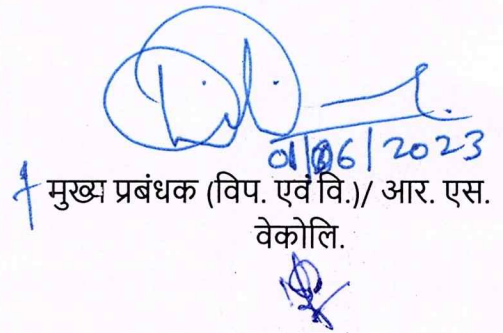 01/06/2023
मुख्य प्रबंधक (विप. एवं वि.)/ आर. एस.
वेकोलि.